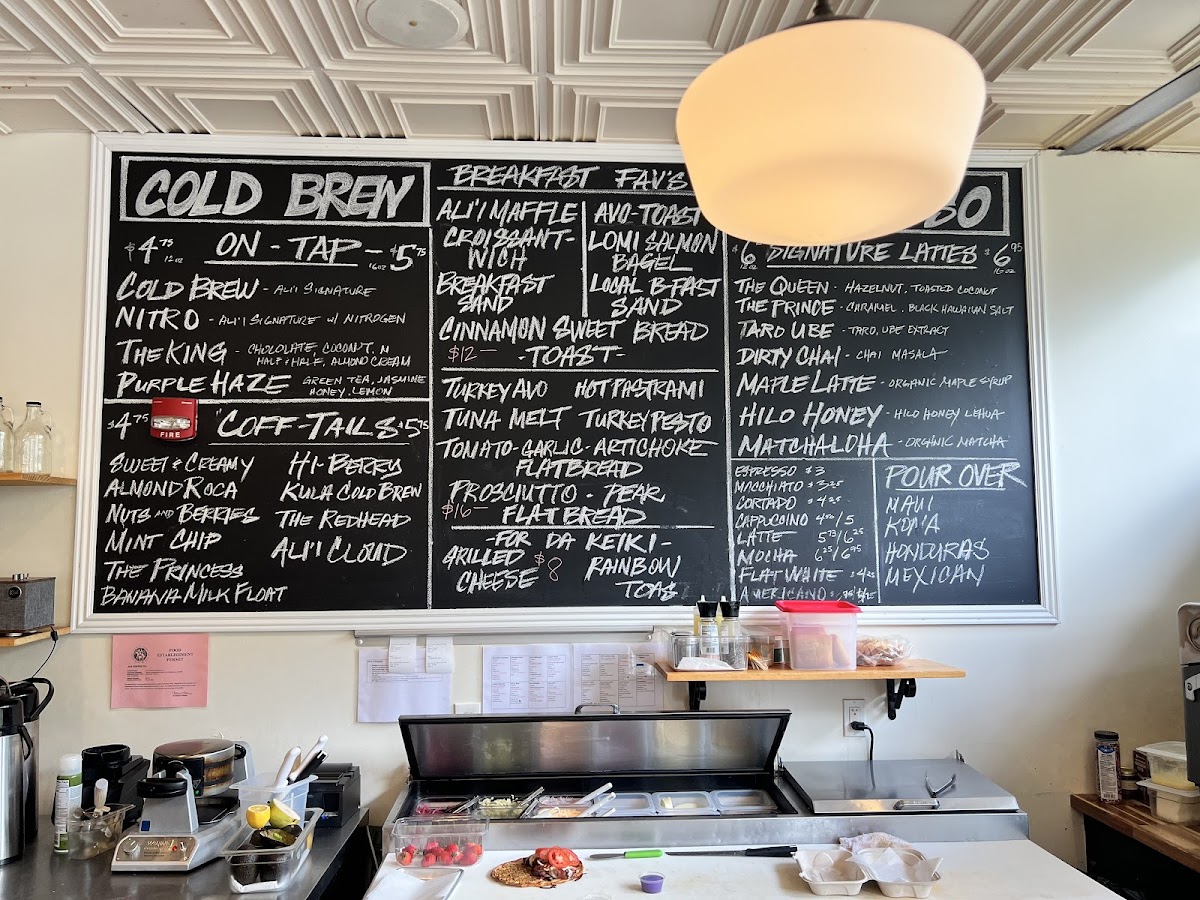 COLD BREW
$4.75 12oz ON-TAP- $5.75 16oz
COLD BREW - ALI'I SIGNATURE
NITRO - ALI'I SIGNATURE W/ NITROGEN
THE KING - CHOCOLATE, COCONUT, M
HALF & HALF, ALMOND CREAM
PURPLE HAZE GREEN TEA, JASMINE
HONEY, LEMON
$4.75 "COFF-TAILS $5.75
FIRE
SWEET & CREAMY
ALMOND ROCA
NUTS AND BERRIES
MINT CHIP
THE PRINCESS
BANANA MILK FLOAT
HI-BERRY
KULA COLD BREW
THE REDHEAD
ALI'I CLOUD
BREAKFAST FAV'S
ALI'I MAFFLE
CROISSANT-
WICH
BREAKFAST
SAND
AVO-TOAST
LOMI SALMON
BAGEL
LOCAL B-FAST
SAND
CINNAMON SWEET BREAD
$12- -TOAST-
TURKEY AVO HOT PASTRAMI
TUNA MELT TURKEY PESTO
TOMATO-GARLIC-ARTICHOKE
FLATBREAD
PROSCIUTTO - PEAR
$16- FLATBREAD
-FOR DA KEIKI-
GRILLED
CHEESE
$8
RAINBOW
TOAS
SO
$6 12oz SIGNATURE LATTES $6.95 16oz
THE QUEEN - HAZELNUT, TOASTED COCONUT
THE PRINCE - CARAMEL, BLACK HAWAIIAN SALT
TARO UBE - TARO, UBE EXTRACT
DIRTY CHAI - CHAI MASALA
MAPLE LATTE - ORGANIC MAPLE SYRUP
HILO HONEY - HILO HONEY LEHUA
MATCHALOHA - ORGANIC MATCHA
ESPRESSO $3
MACCHIATO $3.25
CORTADO $4.25
CAPPUCCINO 4.50/5
LATTE 5.75/6.25
MOCHA 6.25/6.95
FLAT WHITE $4.25
AMERICANO
POUR OVER
MAUI
KONA
HONDURAS
MEXICAN
FOOD
ESTABLISHMENT
PERMIT